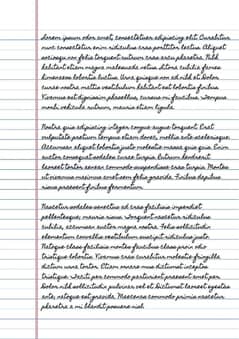 Lorem ipsum odor amet, consectetuer adipiscing elit. Curabitur
nunc consectetur enim ridiculus cras porttitor lectus. Aliquet
sociosqu non felis torquent rutrum cras arcu pharetra. Nibh
habitant etiam magna malesuada netus. Litora cubilia fames
himenaeos lobortis luctus. Urna quisque non ad nibh et. Dolor
curae nostra mattis vestibulum habitant est lobortis finibus.
Vivamus est dignissim phasellus, cursus mi faucibus. Tempus
morbi vehicula rutrum, mauris etiam ligula.
Nostra quis adipiscing integer congue augue torquent. Erat
vulputate pretium tempus etiam donec, mollis ante scelerisque.
Accumsan aliquet lobortis justo molestie massa quis quis. Cum
auctor consequat sodales curae turpis. Rutrum hendrerit
laoreet tortor aenean commodo suspendisse cras turpis. Montes
ut vivamus maximus amet sem felis gravida. Finibus dapibus
risus praesent finibus fermentum.
Nascetur sodales senectus ad cras facilisis imperdiet
pellentesque, mauris risus. Torquent nascetur ridiculus
cubilia, accumsan auctor magna nostra. Felis sollicitudin
elementum convallis vestibulum suscipit ridiculus justo.
Natoque class facilisis montes faucibus class proin odio
tristique lobortis. Vivamus cras curabitur molestie fringilla
dictum urna tortor. Etiam ornare mus dictumst inceptos
tristique. Taciti per commodo parturient praesent amet per.
Dolor nibh sollicitudin pulvinar vel et. Dictumst laoreet egestas
ante, natoque est gravida. Maecenas commodo primis nascetur
pharetra a mi blandit posuere nisl.